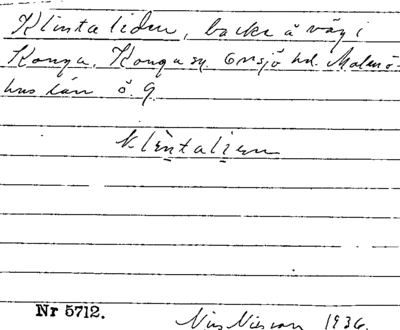 Klintaliden, backe å väg i
Konga, Konga sn. Onsjö hd. Malmö-
hus län ö. 9.
klèntalien
Nr 5712.
Nils Nilsson 1936.